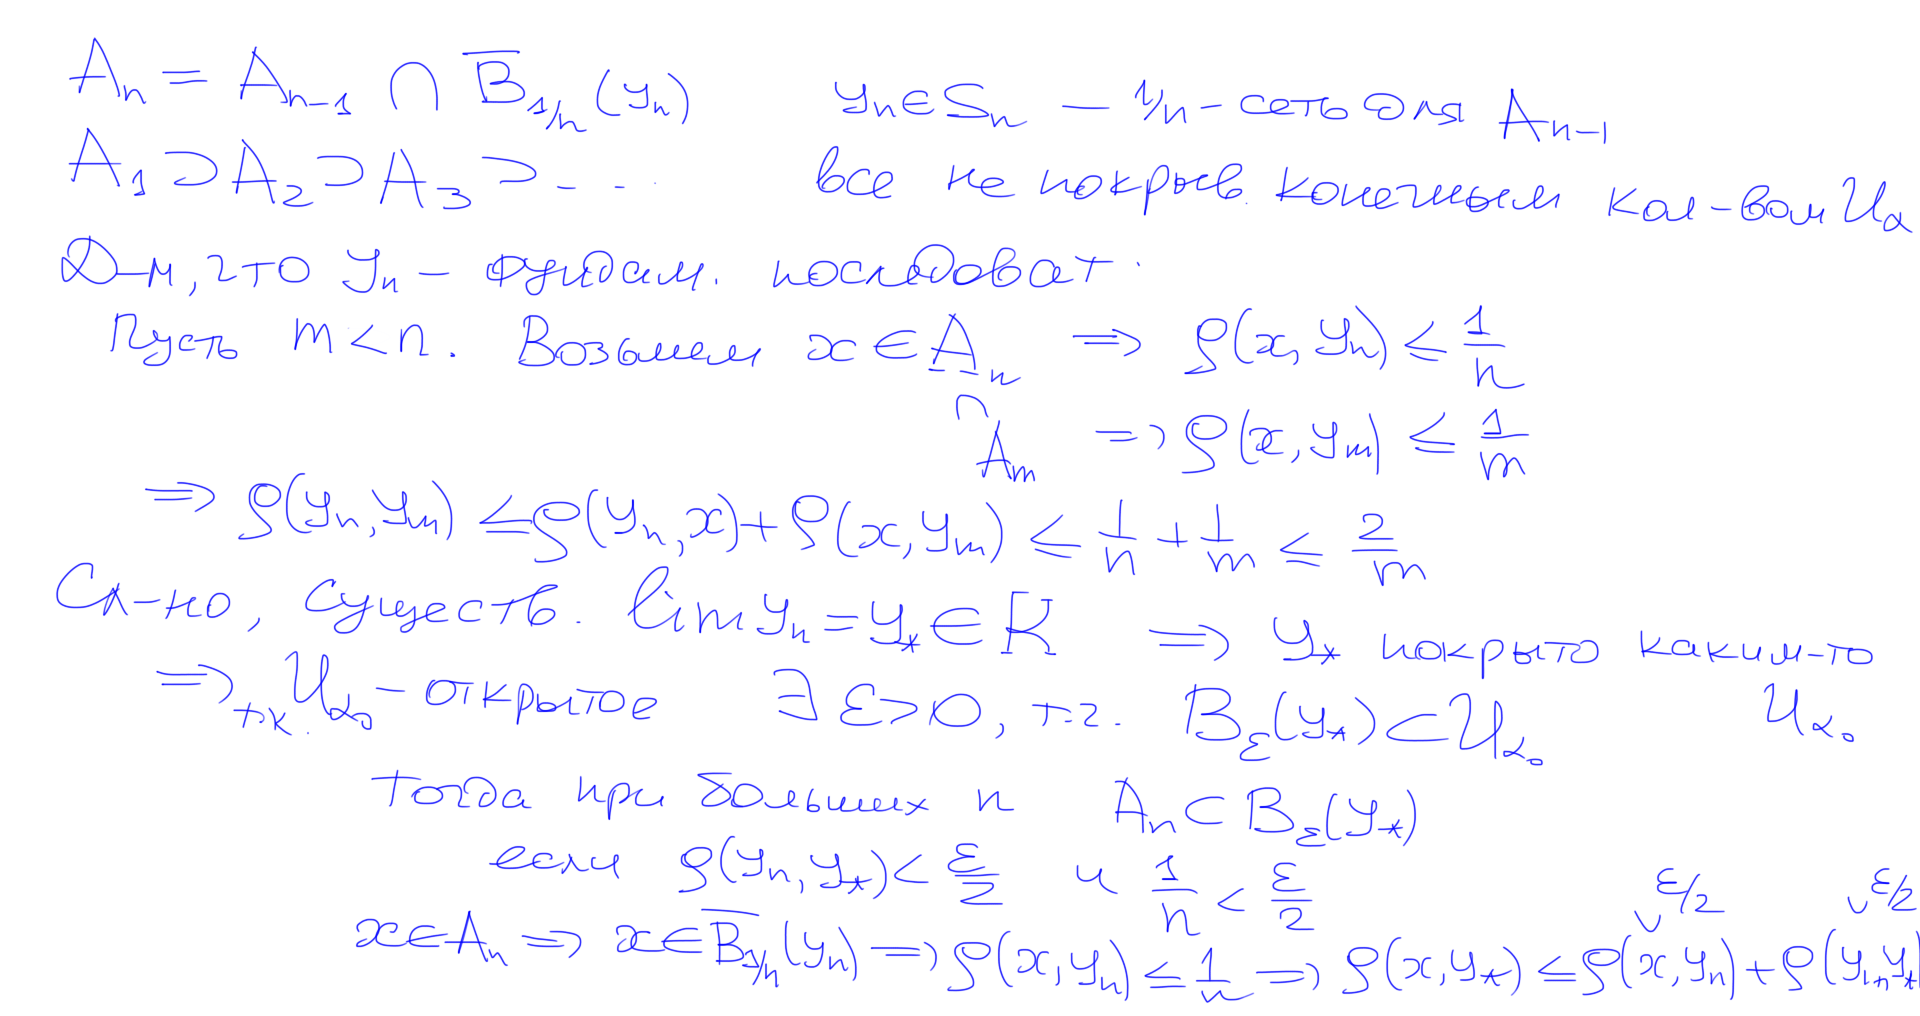 Aₙ = Aₙ₋₁ ∩ B̅₁/ₙ(yₙ)   yₙ ∈ Sₙ – 1/n - сеть для Aₙ₋₁
A₁ ⊃ A₂ ⊃ A₃ ⊃ ...   все не покрыв. конечным кол-вом U_α
Д-м, что yₙ – фундам. последоват.
Пусть m < n. Возьмем x ∈ Aₙ ⇒ ρ(x, yₙ) ≤ 1/n
∩ Aₘ ⇒ ρ(x, yₘ) ≤ 1/m
⇒ ρ(yₙ, yₘ) ≤ ρ(yₙ, x) + ρ(x, yₘ) ≤ 1/n + 1/m ≤ 2/m
Сл-но, существ. lim yₙ = y_* ∈ K ⇒ y_* покрыто каким-то U_α₀
⇒ т.к. U_α₀ – открытое ∃ ε > 0, т.ч. B_ε(y_*) ⊂ U_α₀
Тогда при больших n   Aₙ ⊂ B_ε(y_*)
если ρ(yₙ, y_*) < ε/2 и 1/n < ε/2
x ∈ Aₙ ⇒ x ∈ B̅₁/ₙ(yₙ) ⇒ ρ(x, yₙ) ≤ 1/n ⇒ ρ(x, y_*) ≤ ρ(x, yₙ) + ρ(yₙ, y_*
∨ ε/2   ∨ ε/2